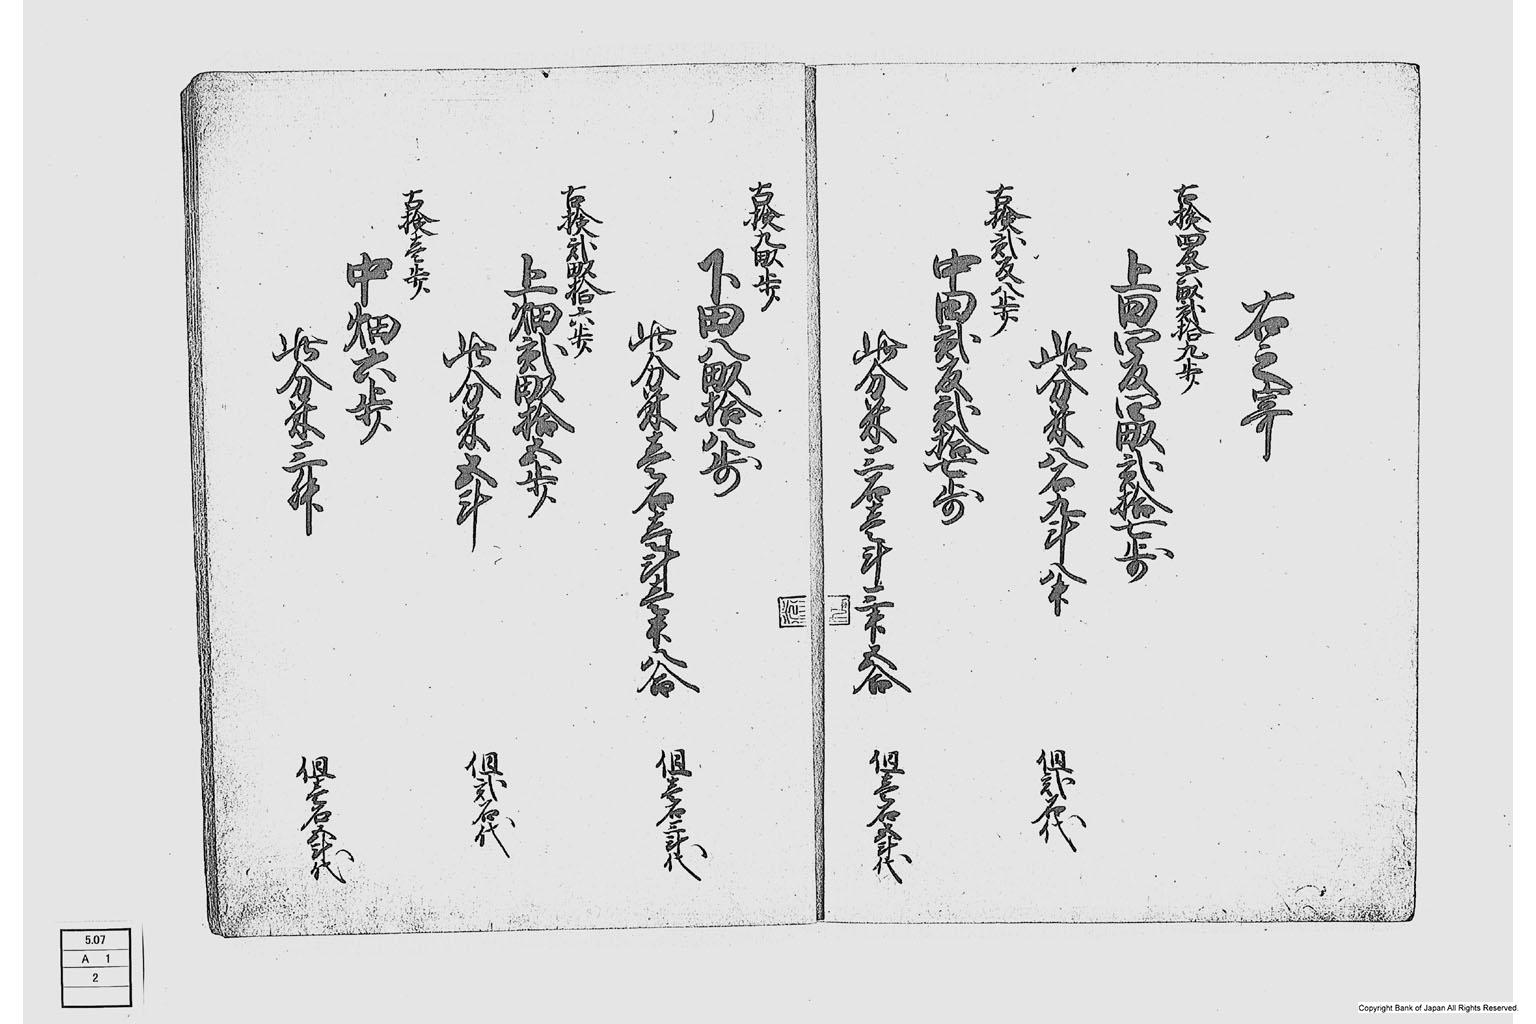 右之寄
古検四反六畝弐拾九歩
上田四反四畝弐拾七歩
此分米八石九斗八升
但弐石代
古検弐反八歩
中田弐反弐拾七歩
此分米三石壱斗三升五合
但壱石五斗代
古検九畝歩
下田八畝拾八歩
此分米壱石壱斗壱升八合
但壱石三斗代
古検弐畝拾六歩
上畑弐畝拾五歩
此分米五斗
但弐石代
古検壱歩
中畑六歩
此分米三升
但壱石五斗代
5.07
A 1
2
Copyright Bank of Japan All Rights Reserved.